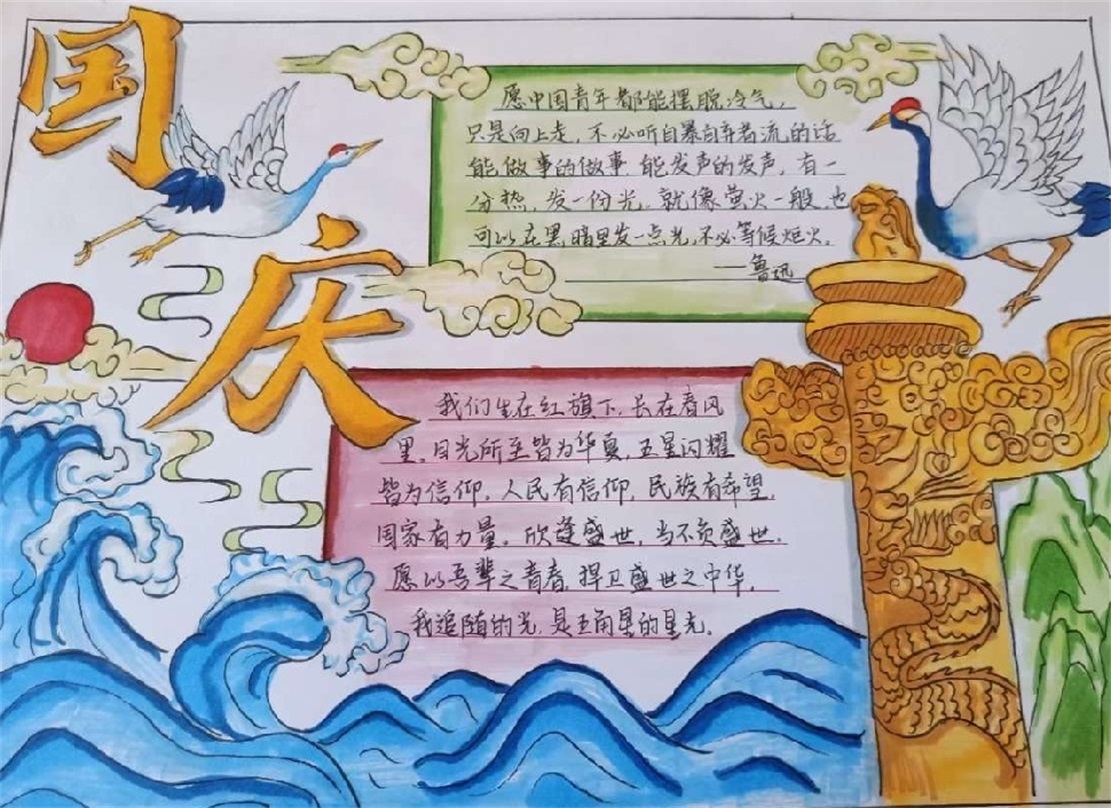 国庆
愿中国青年都能摆脱冷气，
只是向上走，不必听自暴自弃者流的话
能做事的做事 能发声的发声，有一
分热，发一份光。就像萤火一般 也
可以在黑暗里发一点光，不必等候炬火。
——鲁迅
我们生在红旗下，长在春风
里。目光所至皆为华夏，五星闪耀
皆为信仰。人民有信仰，民族有希望，
国家有力量。欣逢盛世，当不负盛世。
愿以吾辈之青春 捍卫盛世之中华。
我追随的光，是五角星的星光。